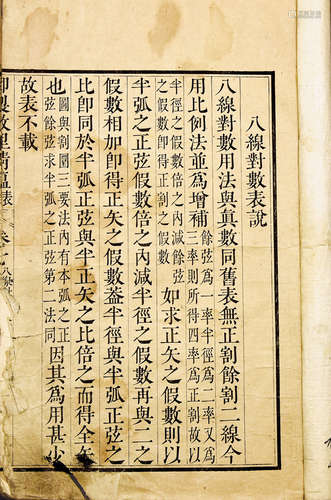 八線對數表說
八線對數用法與眞數同舊表無正割餘割二線今
用比例法並爲增補餘弦爲一率半徑爲二率又爲三率則所得四率爲正割故以
半徑之假數倍之內減餘弦之假數即得正割之假數如求正矢之假數則以
半弧之正弦假數倍之內減半徑之假數再與二之
假數相加即得正矢之假數蓋半徑與半弧正弦之
比即同於半弧正弦與半正矢之比倍之而得全矢
也圜與割圜三要法內有本弧之正弦餘弦求半弧之正弦第二法同因其爲用甚少
故表不載
御製數理精蘊表 卷 八線